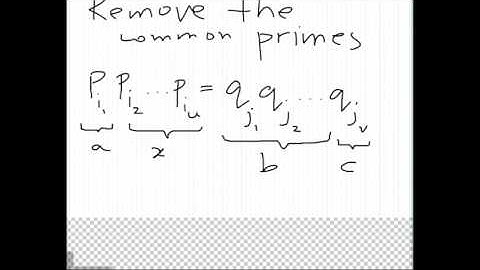 Remove the
common primes
p_{i_1} p_{i_2} ... p_{i_u} = q_{j_1} q_{j_2} .... q_{j_v}
a x b c